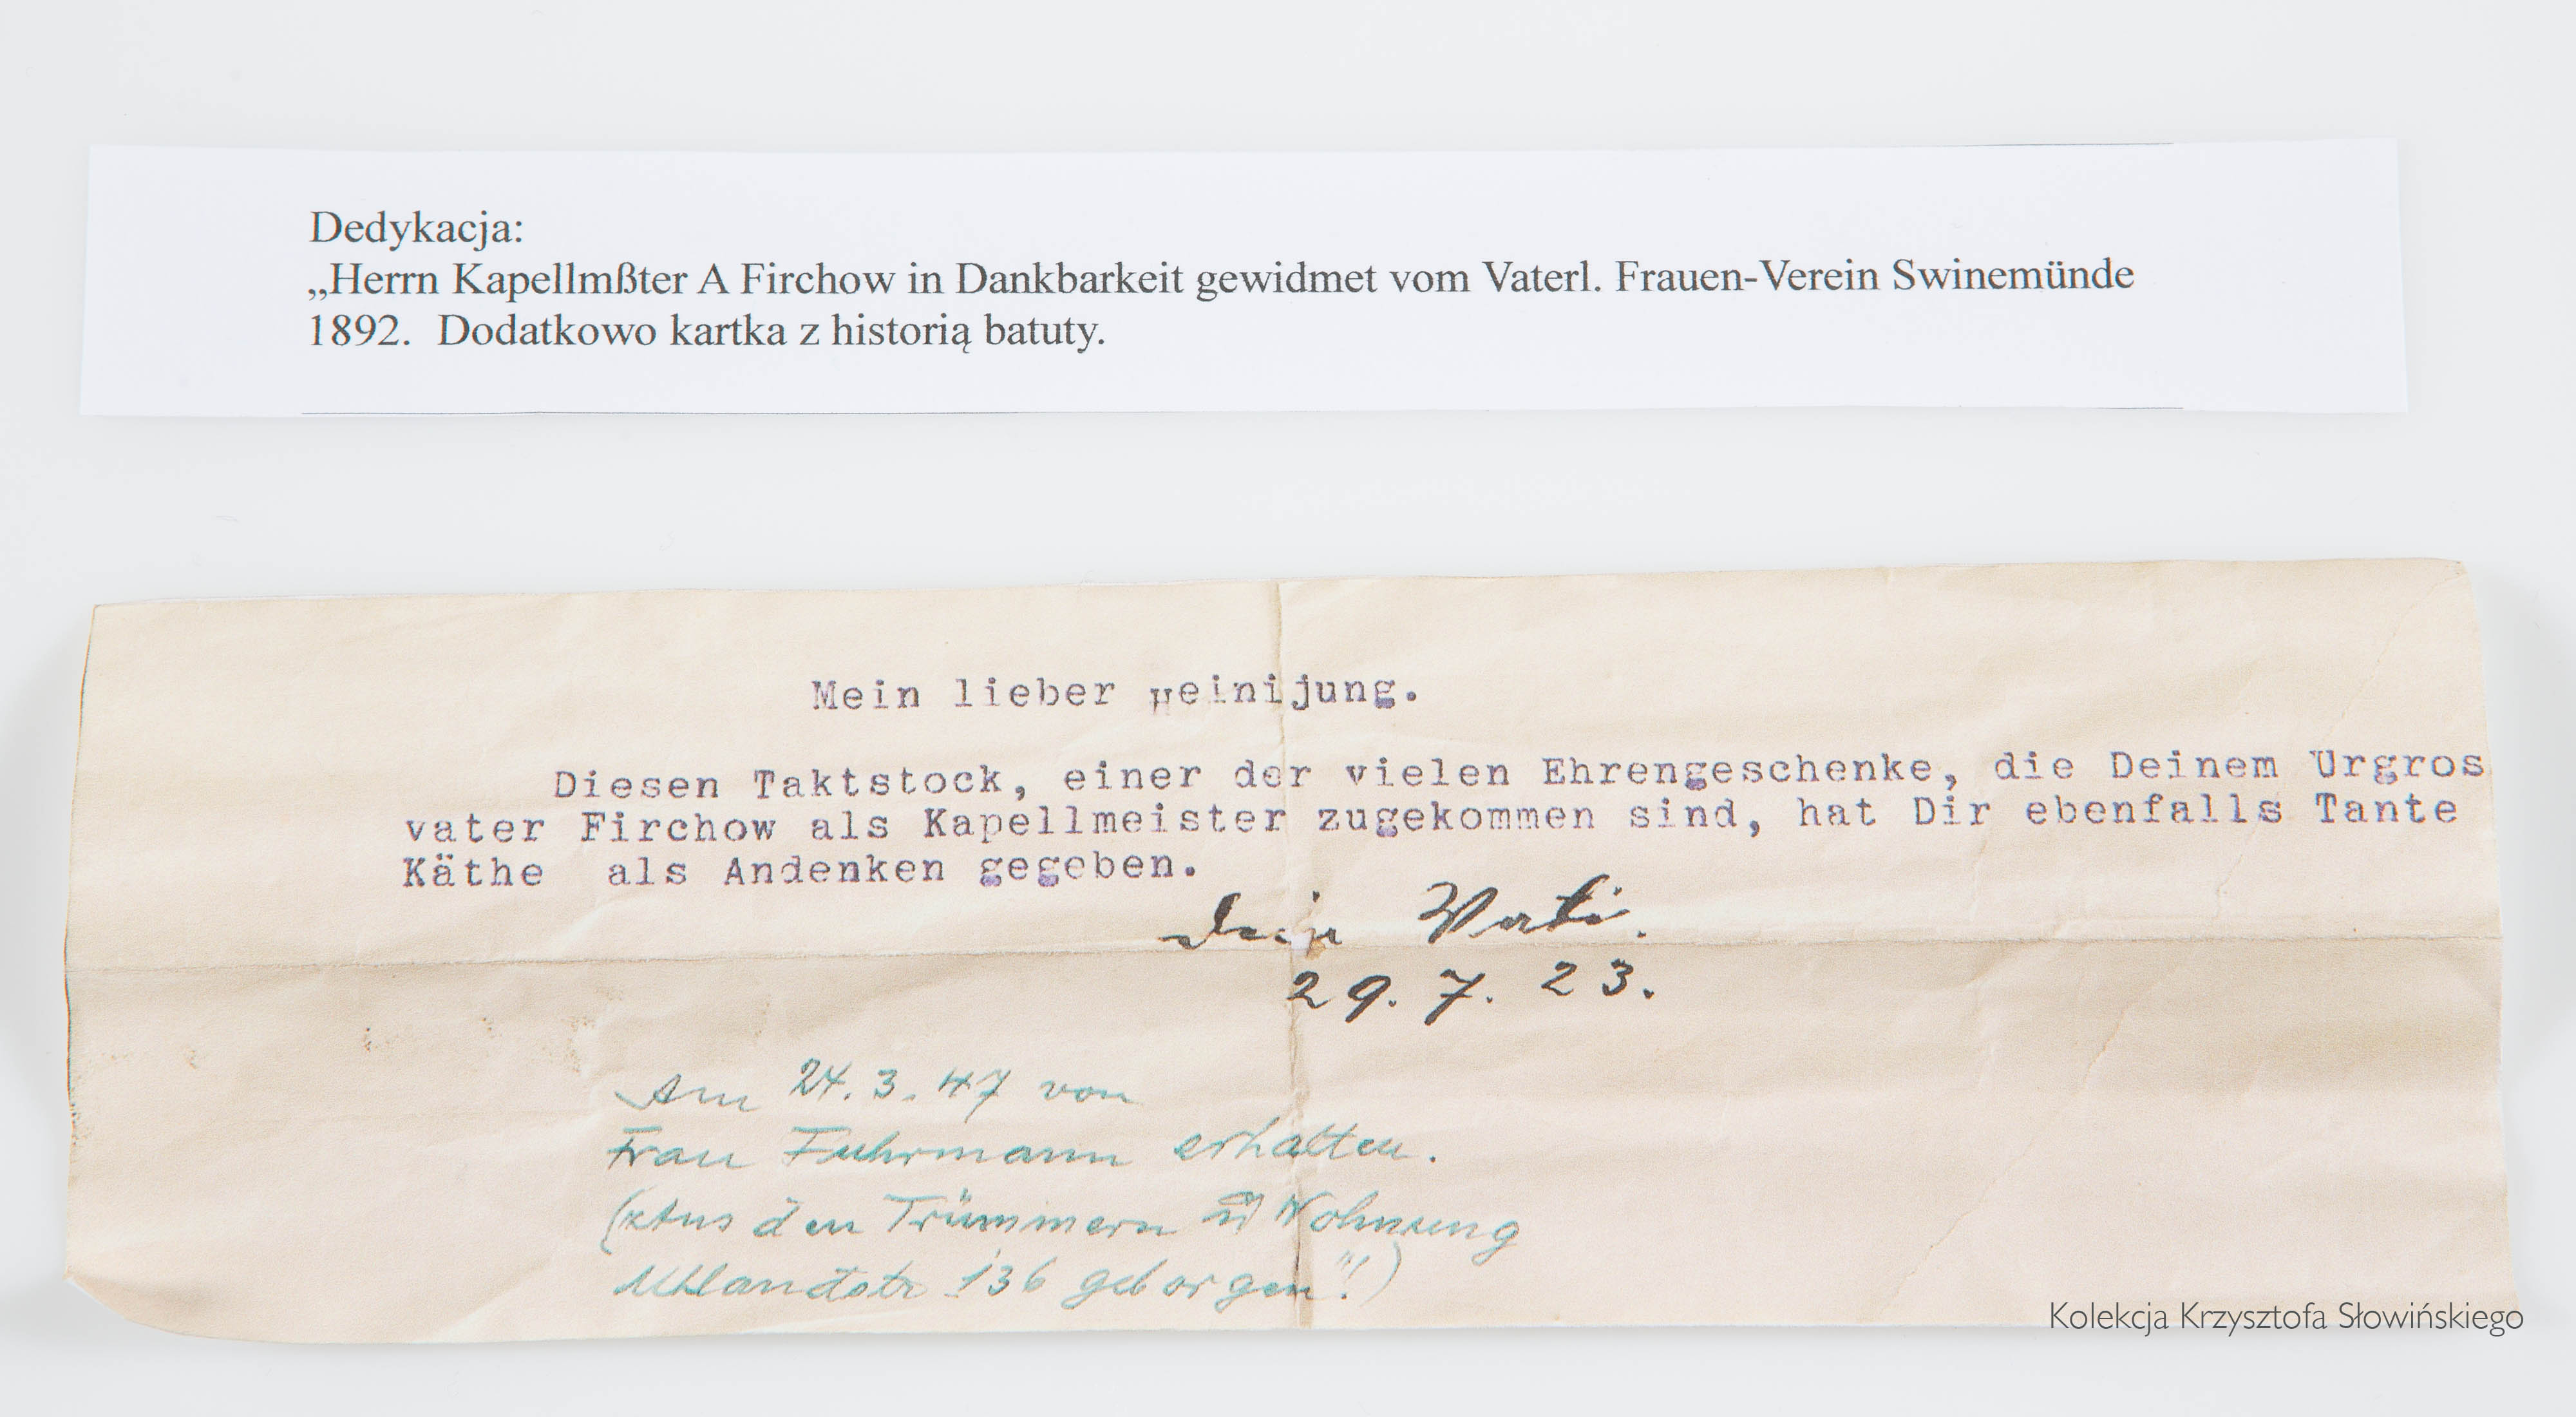 Dedykacja:
„Herrn Kapellmßter A Firchow in Dankbarkeit gewidmet vom Vaterl. Frauen-Verein Swinemünde
1892. Dodatkowo kartka z historią batuty.
Mein lieber
Diesen Taktstock, einer der vielen Ehrengeschenke, die Deinem Urgros
vater Firchow als Kapellmeister zugekommen sind, hat Dir ebenfalls Tante
Käthe als Andenken gegeben.
Dein Vati.
29. 7. 23.
Am 24. 3. 47 von
Frau Fuhrmann erhalten.
den Trümmern Wohnung
Uhlandstr 136 geborgen"!)
Kolekcja Krzysztofa Słowińskiego